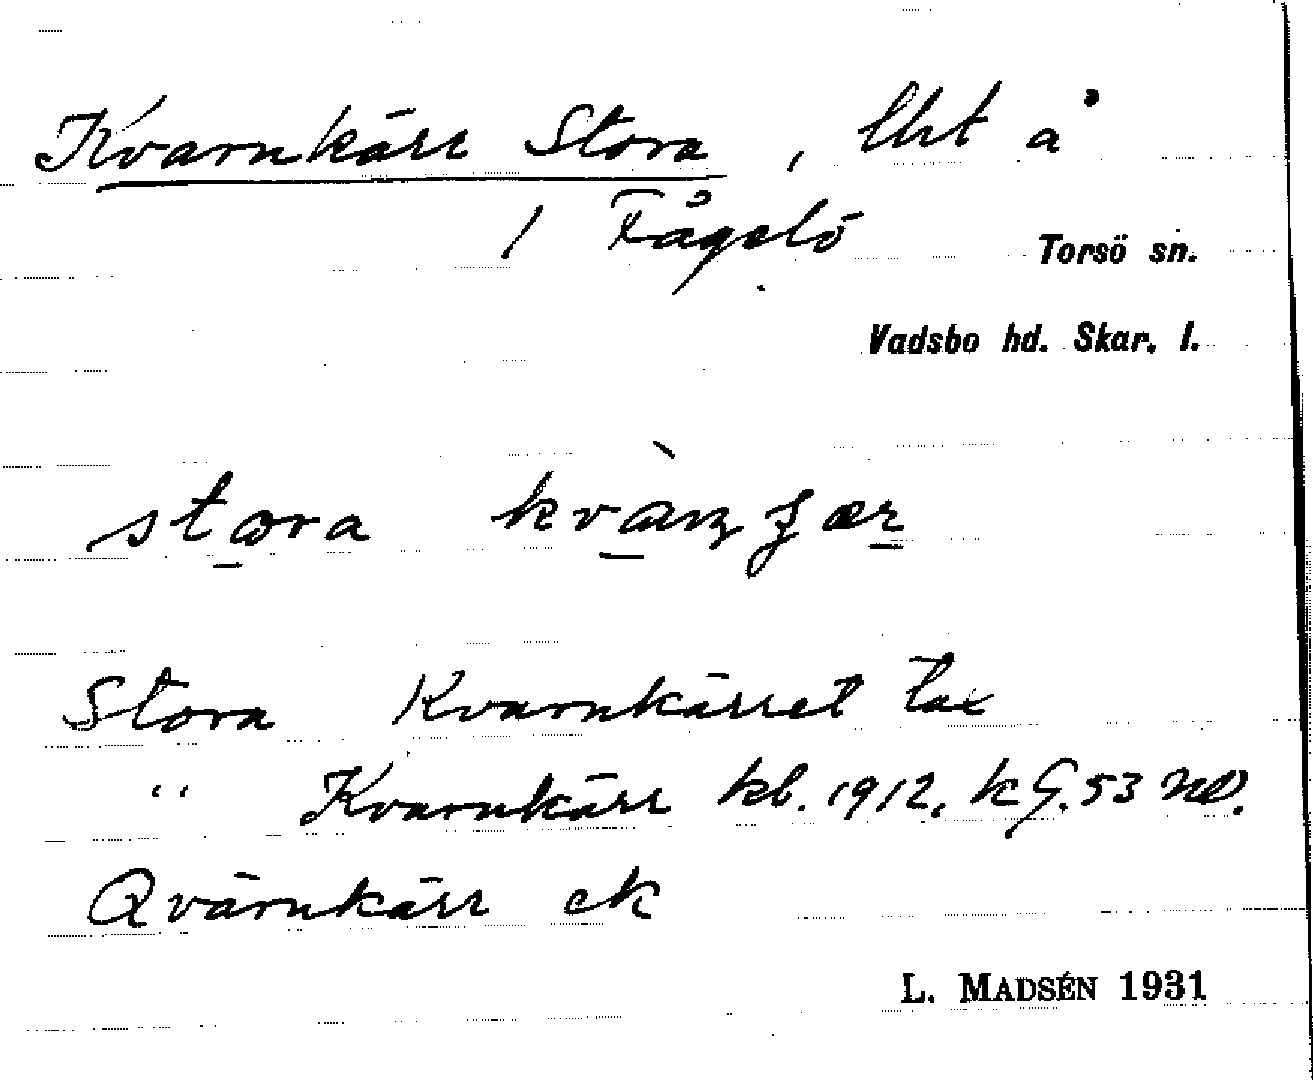 Kvarnkärr Stora, lht å
1 Fågelö
Torsö sn.
Vadsbo hd. Skar. l.
stora
Stora Kvarnkärret tax
" Kvarnkärr kb. 1912, kG. 53 NO.
Qvärnkärr ek
L. MADSÉN 1931